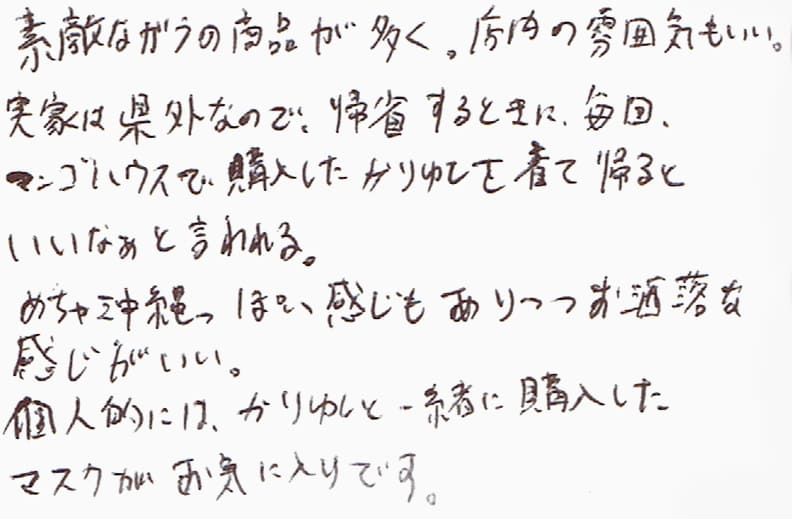 素敵ながらの商品が多く。店内の雰囲気もいい。
実家は県外なので、帰省するときに、毎回、
マンゴハウスで購入したかりゆしを着て帰ると
いいなぁと言われる。
めちゃ沖縄っぽい感じもありつつお洒落な
感じがいい。
個人的には、かりゆしと一緒に購入した
マスクがお気に入りです。